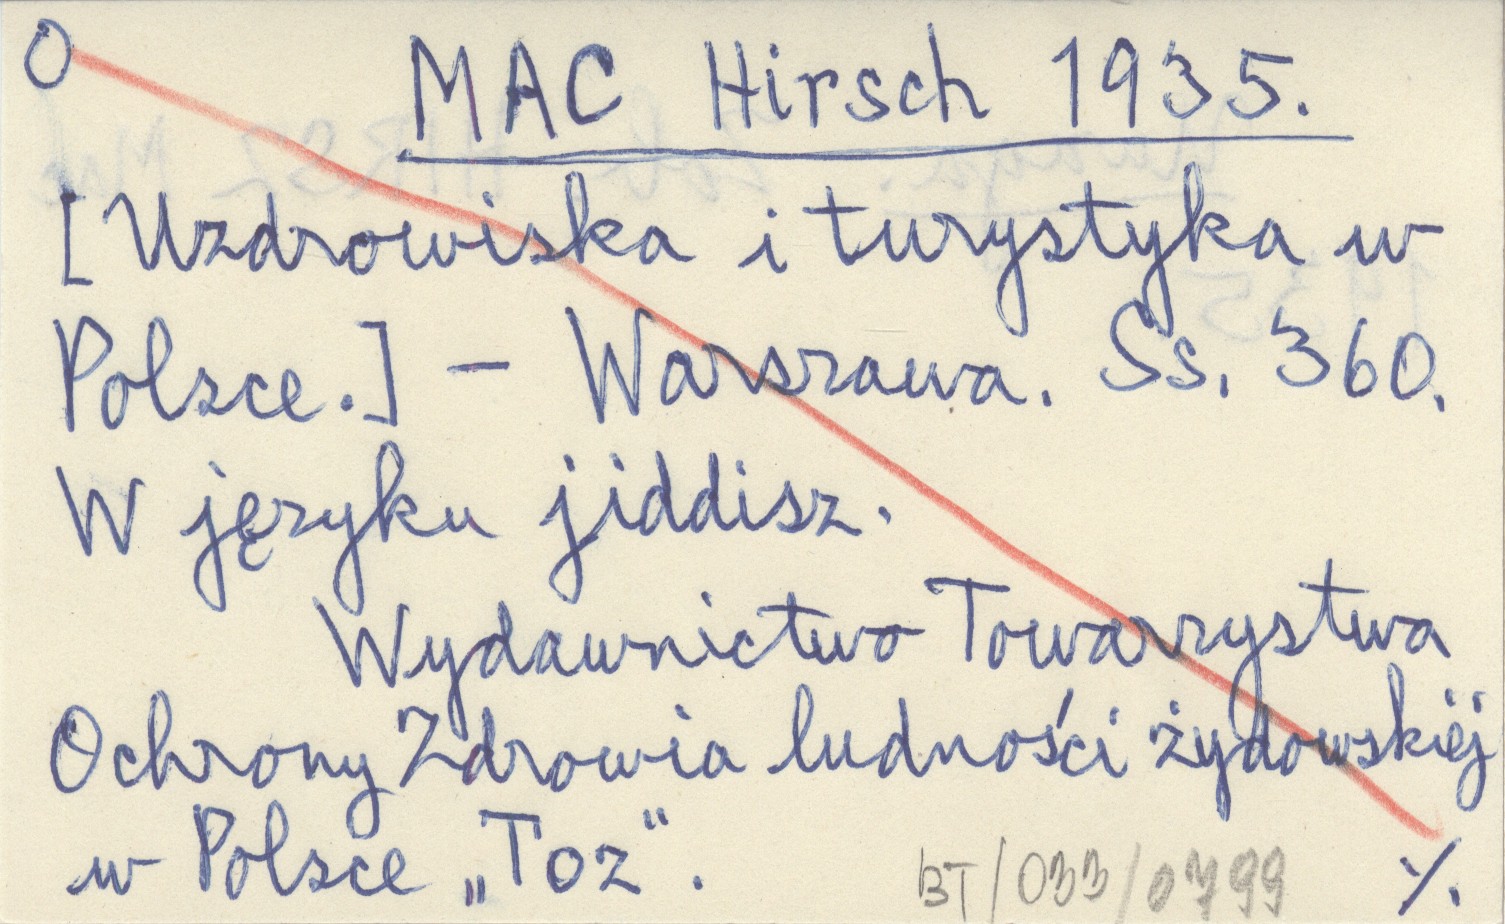 O MAC Hirsch 1935.
[Uzdrowiska i turystyka w
Polsce.] – Warszawa. Ss. 360.
W języku jiddisz.
Wydawnictwo Towarzystwa
Ochrony Zdrowia ludności żydowskiej
w Polsce „Toz“.
BT/033/0799 ·/.